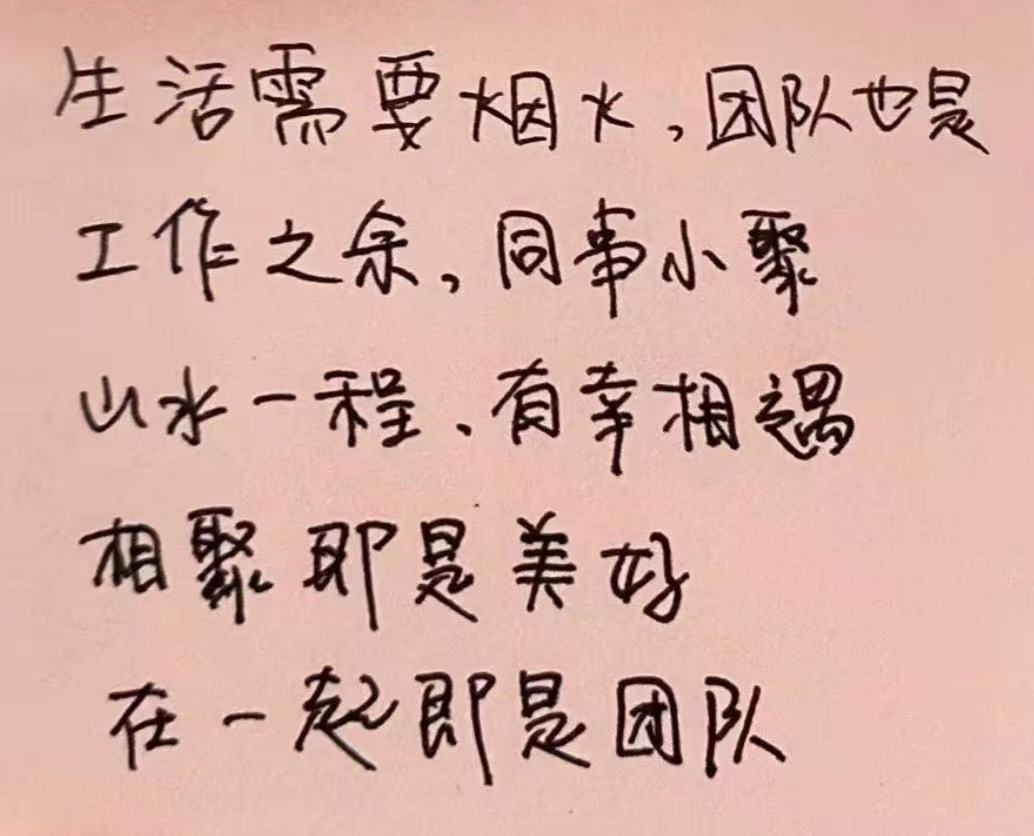 生活需要烟火，团队也是
工作之余，同事小聚
山水一程、有幸相遇
相聚即是美好
在一起即是团队